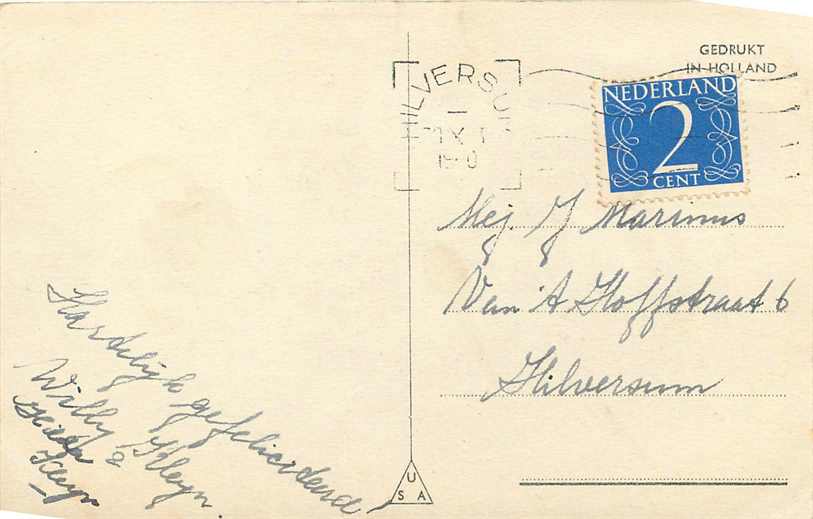 GEDRUKT
IN HOLLAND
HILVERSUM
NEDERLAND
2
CENT
Mej. J Marinus
Van 't Hoffstraat 6
Hilversum
Hartelijk gefeliciteerd
Willy & Kleyn.
U
S A